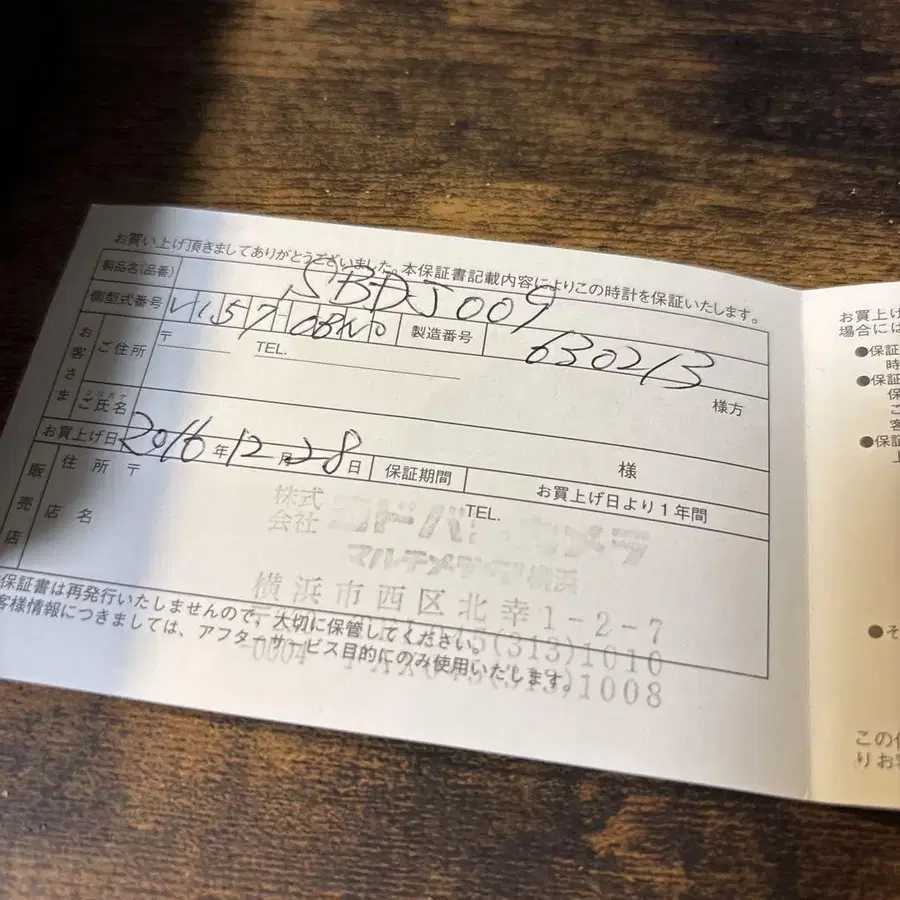 お買い上げ頂きましてありがとうございました。本保証書記載内容によりこの時計を保証いたします。
製品名(品番) SBDJ009
側型式番号 V157-0BN0 製造番号 630213
お客さま
ご住所 〒 TEL.
様方
フリガナ
ご氏名 様
お買上げ日 2016年12月28日 保証期間 お買上げ日より1年間
販売店
住所 〒 TEL.
店名
株式会社 ヨドバシカメラ
マルチメディア横浜
横浜市西区北幸1-2-7
(313)1010
-0004 FAX045(313)1008
保証書は再発行いたしませんので、大切に保管してください。
客様情報につきましては、アフターサービス目的にのみ使用いたします。
お買上げ
場合には
●保証
時
●保証
保
ご
客
●保証
上
●そ
この保
りお客